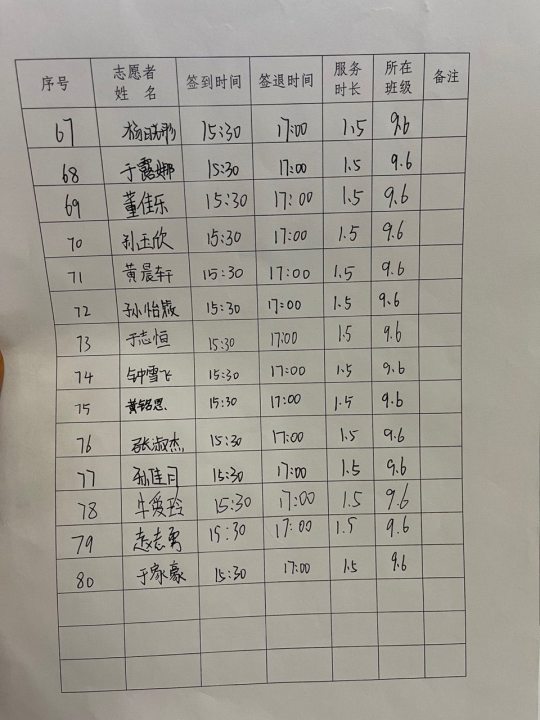 序号 志愿者姓名 签到时间 签退时间 服务时长 所在班级 备注
67 杨晓彤 15:30 17:00 1.5 9.6
68 于露娜 15:30 17:00 1.5 9.6
69 董佳乐 15:30 17:00 1.5 9.6
70 孙玉欣 15:30 17:00 1.5 9.6
71 黄晨轩 15:30 17:00 1.5 9.6
72 孙怡 15:30 17:00 1.5 9.6
73 于志恒 15:30 17:00 1.5 9.6
74 钟雪飞 15:30 17:00 1.5 9.6
75 黄铭恩 15:30 17:00 1.5 9.6
76 张淑杰 15:30 17:00 1.5 9.6
77 孙佳 15:30 17:00 1.5 9.6
78 牛爱玲 15:30 17:00 1.5 9.6
79 赵志勇 15:30 17:00 1.5 9.6
80 于家豪 15:30 17:00 1.5 9.6